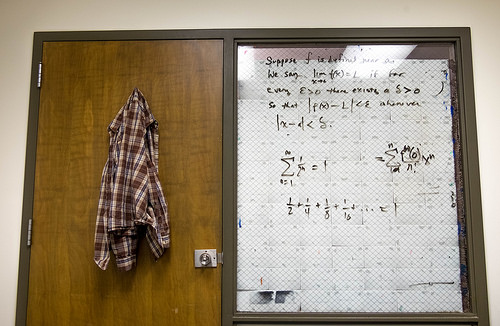 Suppose f is defined near a.
We say lim f(x) = L if for
x→a
every ε>0 there exists a δ>0
so that |f(x) - L| < ε whenever
|x-a| < δ.
∞
∑
n=1
= 1
= ∑
n!
xⁿ
1/2 + 1/4 + 1/8 + 1/16 + ... = 1